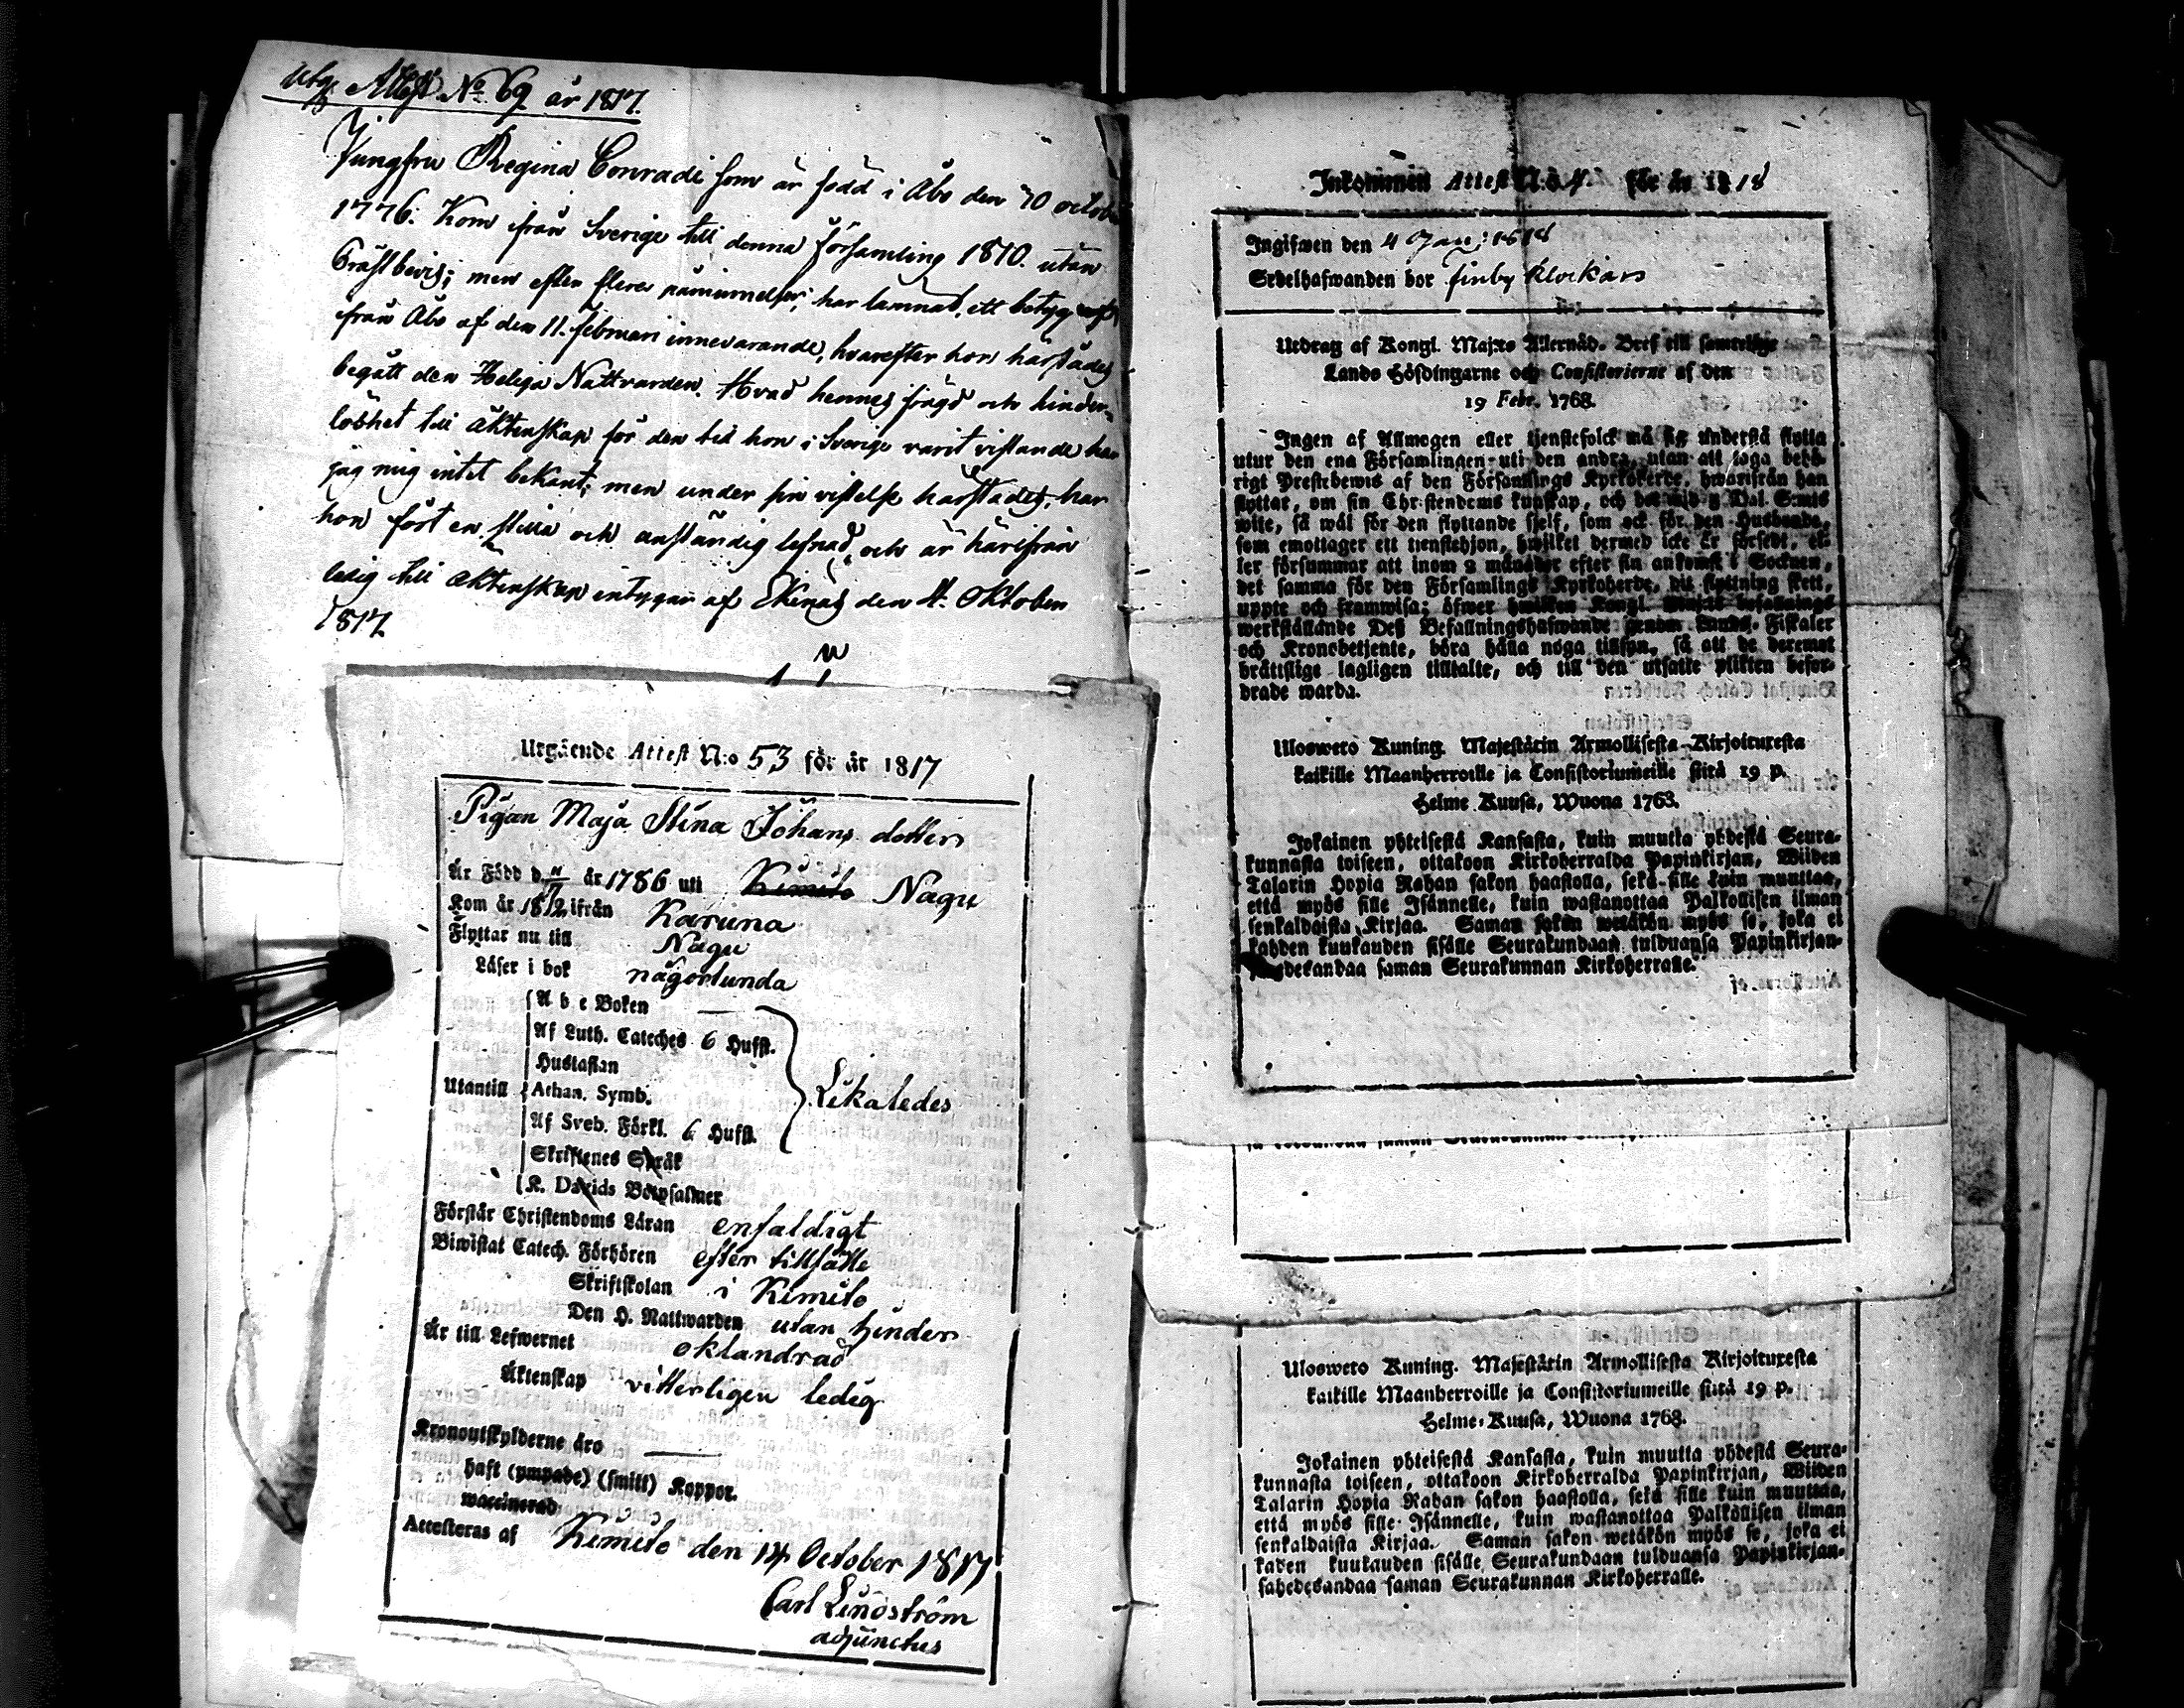 Utg. Attest No 69 år 1817.
Jungfru Regina Conradi som är född i Åbo den 10 octob
1776. Kom ifrån Sverige till denna församling 1810. utan
Prästbevis; men efter flera påminnelser, har lämnat ett betyg
från Åbo af den 11. februari innevarande, hvarefter hon härstädes
begått den Heliga Nattvarden. Hvad hennes frägd och hinder-
löshet till äktenskap för den tid hon i Sverige varit vistande har
jag mig intet bekant; men under sin vistelse härstädes, har
hon fört en stilla och anständig lefnad, och är härifrån
ledig till äktenskap intygar af Ekenäs den 4. Oktober
1817
Utgående Attest N:o 53 för år 1817
Pigan Maja Stina Johans dotter
Är Född d. 11/7 år 1786 uti Kimito Nagu
Kom år 1812 ifrån Karuna
Flyttar nu till Nagu
Läser i bok någorlunda
Utantill
A b c Boken —
Af Luth. Cateches 6 Hufst.
Hustaflan
Athan. Symb.
Af Sveb. Förkl. 6 Hufst.
Likaledes
Skriftenes Språk
K. Davids Botpsalmer
Förstår Christendoms Läran enfaldigt
Biwistat Catech. Förhören efter tillfälle
Skriftskolan i Kimito
Den H. Nattwarden utan hinder
Är till Lefwernet oklandrad
Äktenskap vitterligen ledig
Kronoutskylderne äro —
haft (ympade) (smitt) Koppor.
waccinerad
Attesteras af Kimito den 14 October 1817
Carl Lindström
adjunctus
Inkommen Attest N:o 4. för år 1818
Ingifwen den 4 Jan: 1818
Sedelhafwanden bor finby klockars
Utdrag af Kongl. Maj:ts Allernåd. Bref till samtelige
Lands Höfdingarne och Consistorierne af den
19 Febr. 1768.
Ingen af Allmogen eller tjenstefolck må sig understå flytta
utur den ena Församlingen uti den andra, utan att taga behö-
rigt Prestebewis af den Församlings Kyrkoherde, hwarifrån han
flyttar, om sin Christendoms kunskap, och det wid 5 Dal. S:mts
wite, så wäl för den flyttande sjelf, som ock för den Husbonde,
som emottager ett tienstehjon, hwilket dermed icke är försedt, el-
ler försummar att inom 2 månader efter sin ankomst i Socknen,
det samma för den Församlings Kyrkoherde, dit flyttning skett,
uppte och framwisa; öfwer hwilken Kongl. Maj:ts befallnings
werkställande Deß Befallningshafwande genom Lands-Fiskaler
och Kronobetjente, böra hålla noga tillsyn, så att de deremot
bråttslige lagligen tilltalte, och till den utsatte plikten befor-
drade warda.
Ulosweto Kuning. Majestätin Armollisesta Kirjoituxesta
kaikille Maanherroille ja Consistoriumeille siitä 19 p.
Helme Kuusa, Wuona 1763.
Jokainen yhteisestä Kansasta, kuin muutta yhdestä Seura-
kunnasta toiseen, ottakoon Kirkoherralda Papinkirjan, Wiiden
Talarin Hopia Rahan sakon haastolla, sekä sille kuin muuttaa,
että myös sille Isännelle, kuin wastanottaa Palkollisen ilman
senkaldaista Kirjaa. Saman sakon wetäkön myös se, joka ei
kahden kuukauden sisälle Seurakundaan tulduansa Papinkirjan-
sa edeskandaa saman Seurakunnan Kirkoherralle.
Ulosweto Kuning. Majestätin Armollisesta Kirjoituxesta
kaikille Maanherroille ja Consistoriumeille siitä 19 p.
Helme-Kuusa, Wuona 1768.
Jokainen yhteisestä Kansasta, kuin muutta yhdestä Seura-
kunnasta toiseen, ottakoon Kirkoherralda Papinkirjan, Wiiden
Talarin Hopia Rahan sakon haastolla, sekä sille kuin muuttaa,
että myös sille Isännelle, kuin wastanottaa Palkollisen ilman
senkaldaista Kirjaa. Saman sakon wetäkön myös se, joka ei
kahden kuukauden sisälle Seurakundaan tulduansa Papinkirjan-
sahedesandaa saman Seurakunnan Kirkoherralle.